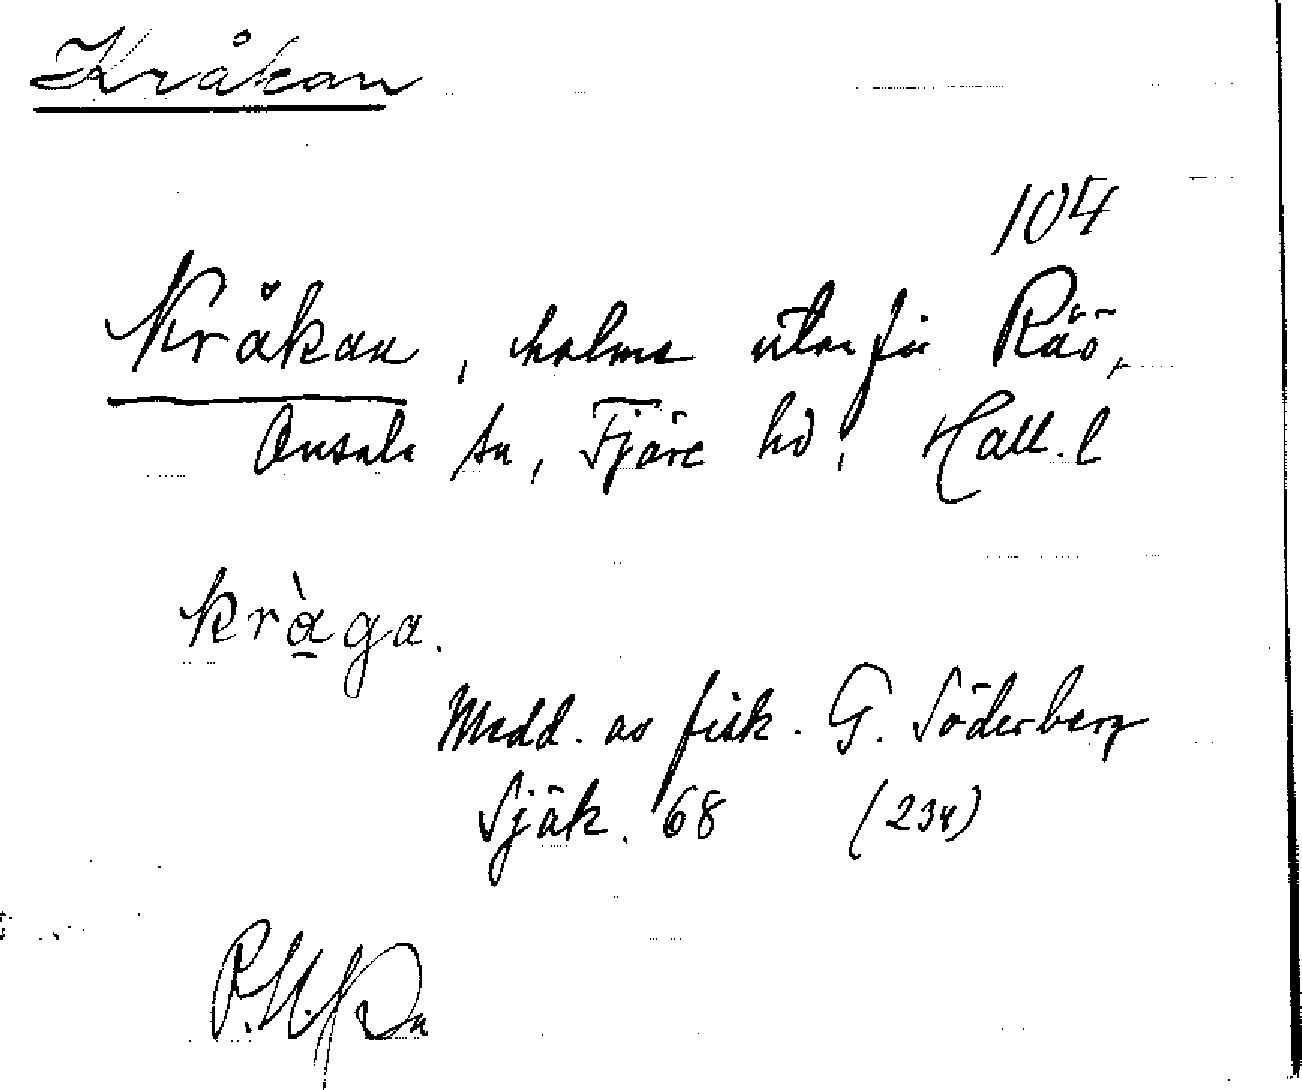 Kråkan
104
Kråkan, holme utanför Råö,
Onsala sn, Fjäre hd, Hall. l
kràga.
Medd. av fisk. G. Söderberg
Sjök. 68 (234)